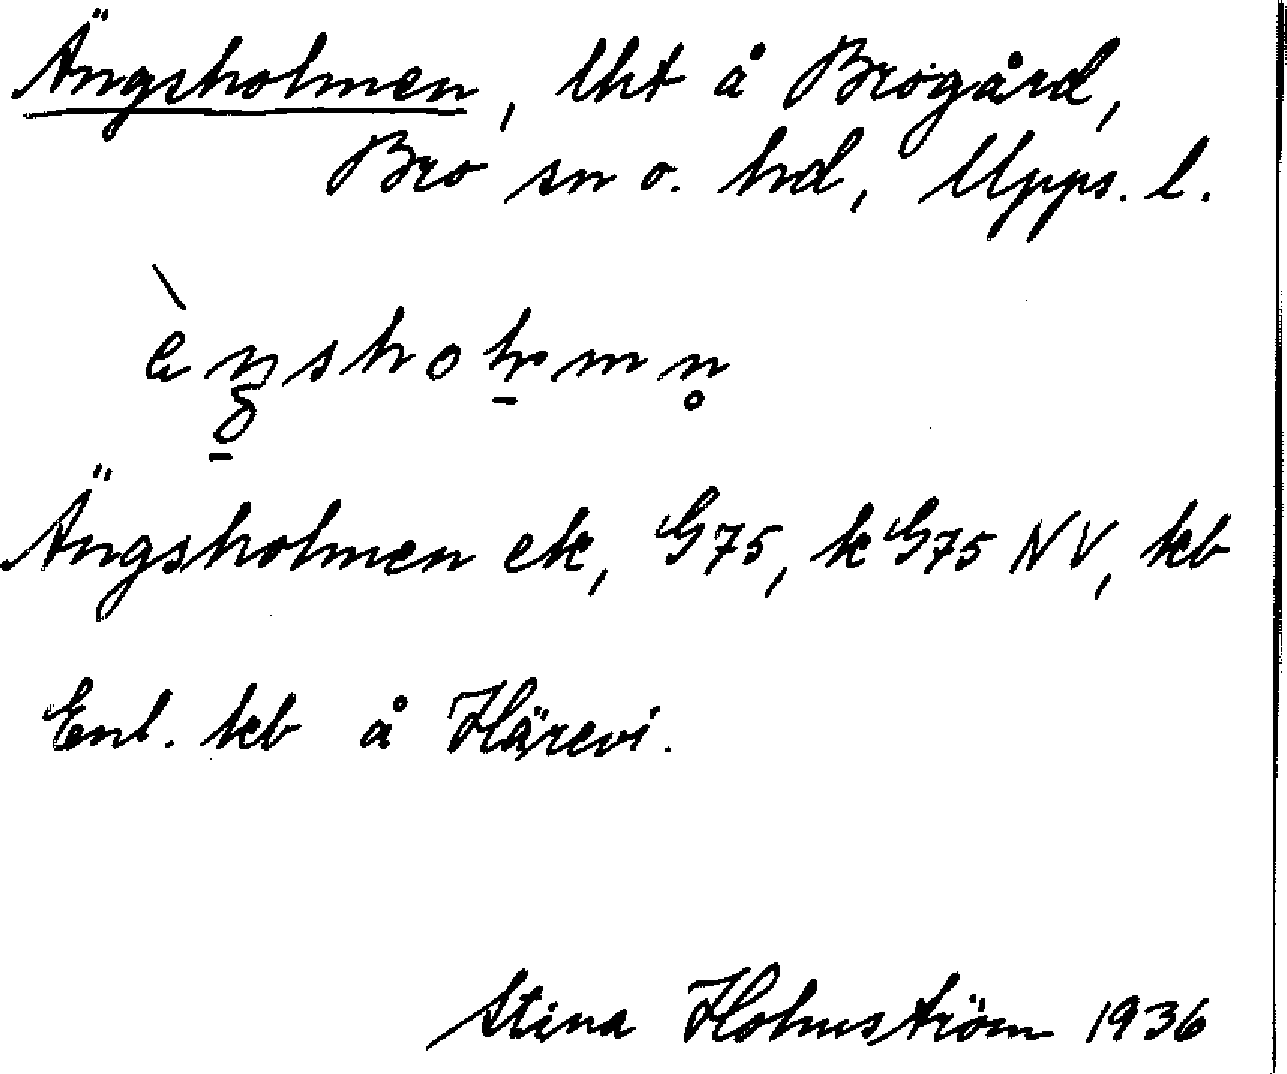 Ängsholmen, lht å Brogård,
Bro sn o. hd, Upps. l.
Ängsholmen ek, G75, k G75 NV, kb
Enl. kb å Härevi.
Stina Holmström 1936